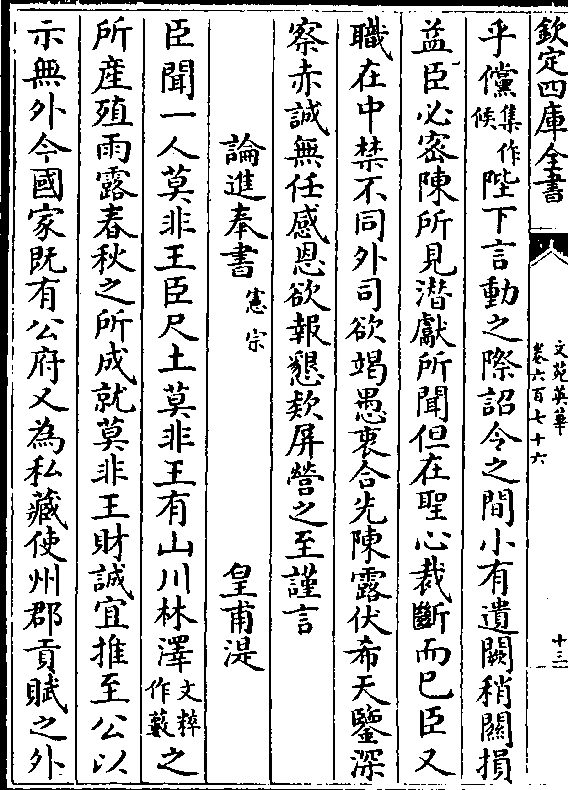 欽定四庫全書
文苑英華
卷六百七十六
十三
乎儻集作候陛下言動之際詔令之間小有遺闕稍關損
益臣必密陳所見潛獻所聞但在聖心裁斷而已臣又
職在中禁不同外司欲竭愚衷合先陳露伏希天鑒深
察赤誠無任感恩欲報懇欵屏營之至謹言
論進奉書憲宗 皇甫湜
臣聞一人莫非王臣尺土莫非王有山川林澤文粹作藪之
所産殖雨露春秋之所成就莫非王財誠宜推至公以
示無外今國家既有公府又為私藏使州郡貢賦之外